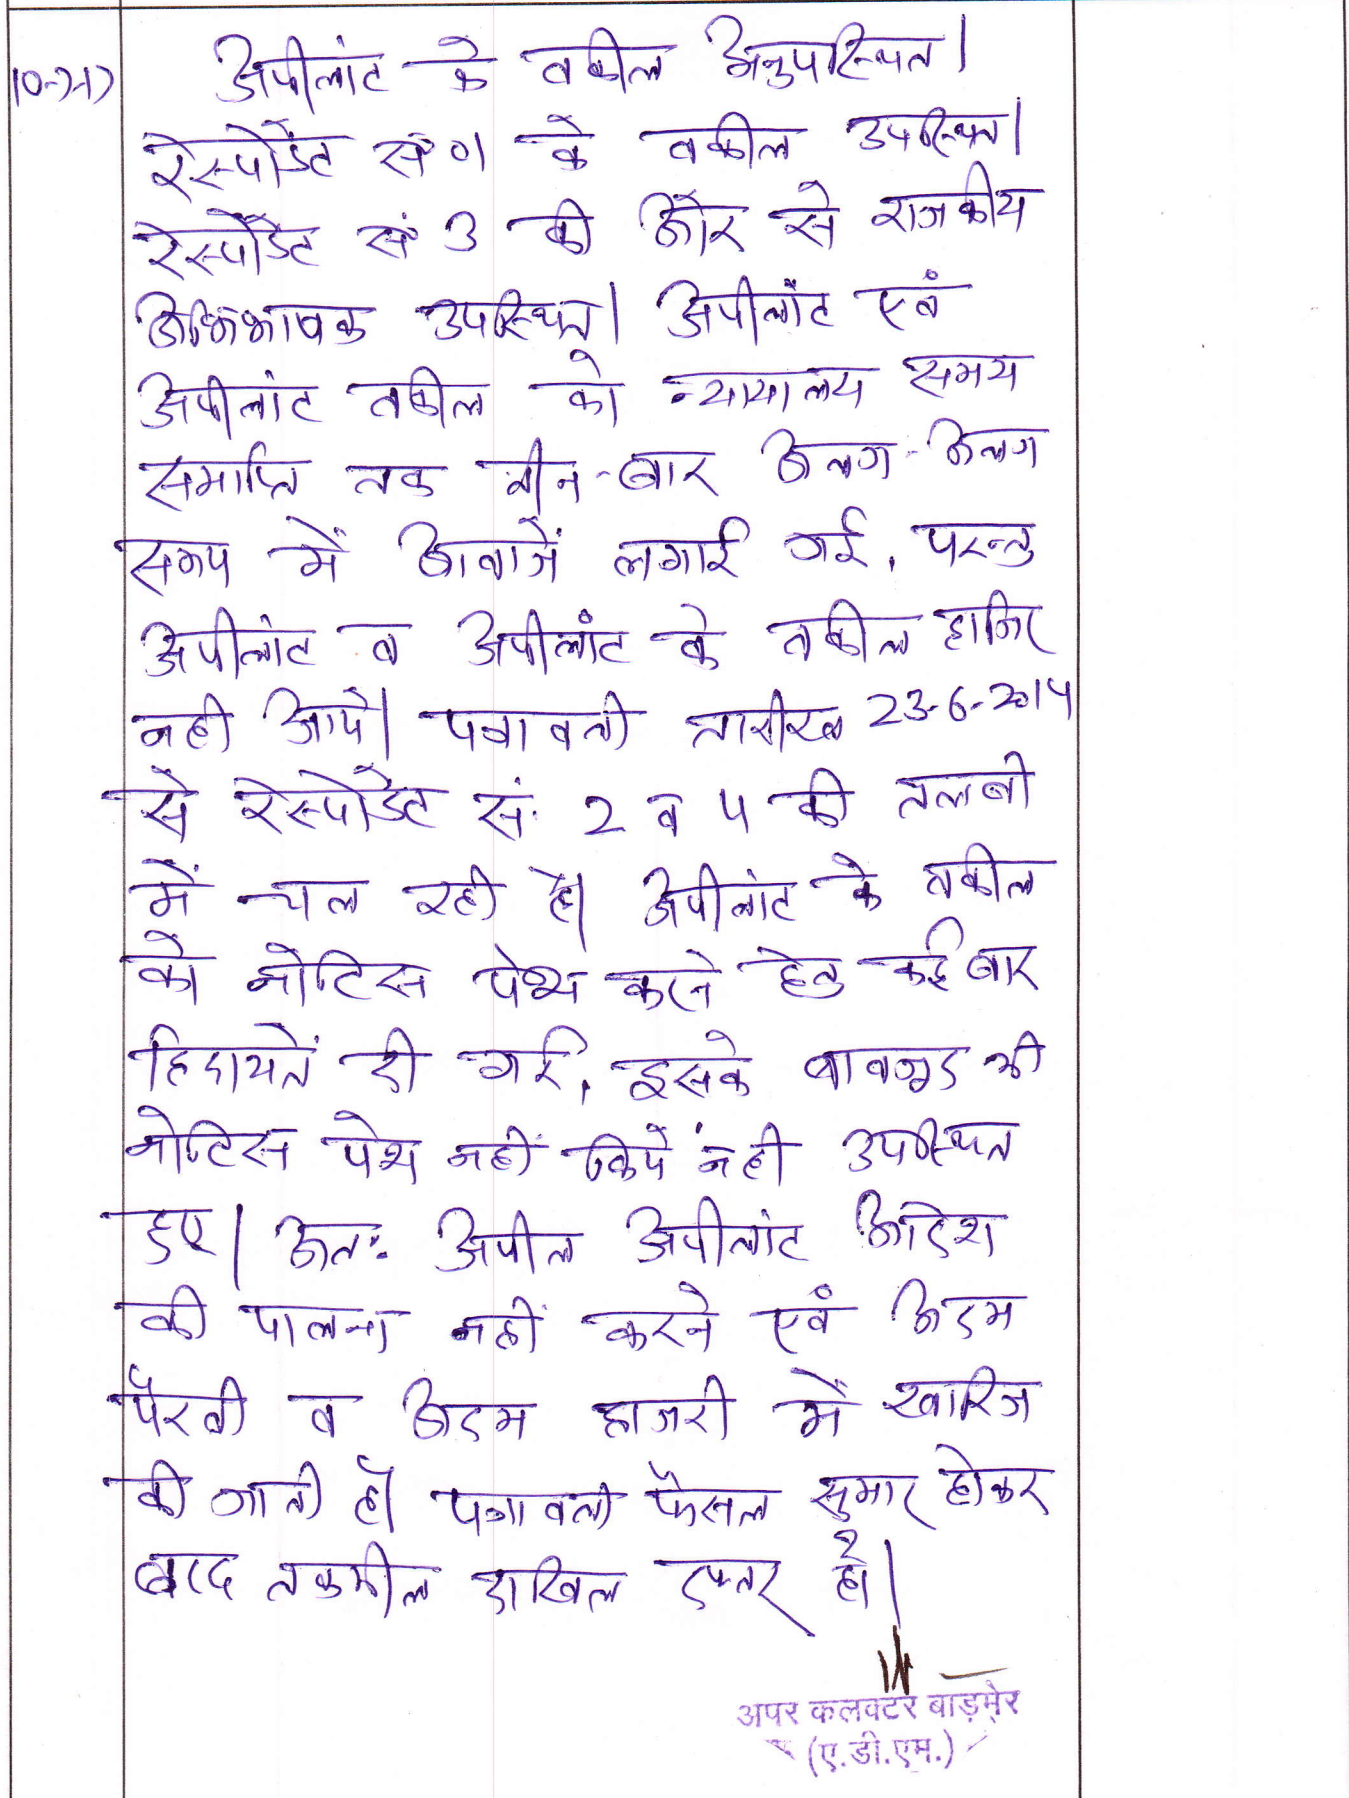 10-7-17
अपीलांट के वकील अनुपस्थित।
रेस्पोंडेंट सं 01 के वकील उपस्थित।
रेस्पोंडेंट सं 3 की और से राजकीय
अभिभाषक उपस्थित। अपीलांट एवं
अपीलांट वकील को न्यायालय समय
समाप्ति तक तीन-बार अलग-अलग
समय में आवाजें लगाई गई, परन्तु
अपीलांट व अपीलांट के वकील हाजिर
नही आये। पत्रावली तारीख 23-6-2014
से रेस्पोंडेंट सं. 2 व 4 की तलबी
में चल रही है। अपीलांट के वकील
को नोटिस पेश करने हेतु कई बार
हिदायतें दी गई, इसके बावजूद भी
नोटिस पेश नहीं किये नही उपस्थित
हुए। अतः अपील अपीलांट आदेश
की पालना नहीं करने एवं अदम
पैरवी व अदम हाजरी में खारिज
की जाती है। पत्रावली फैसल सुमार होकर
बाद तकमील दाखिल दफ्तर हो।
अपर कलक्टर बाड़मेर
(ए.डी.एम.)